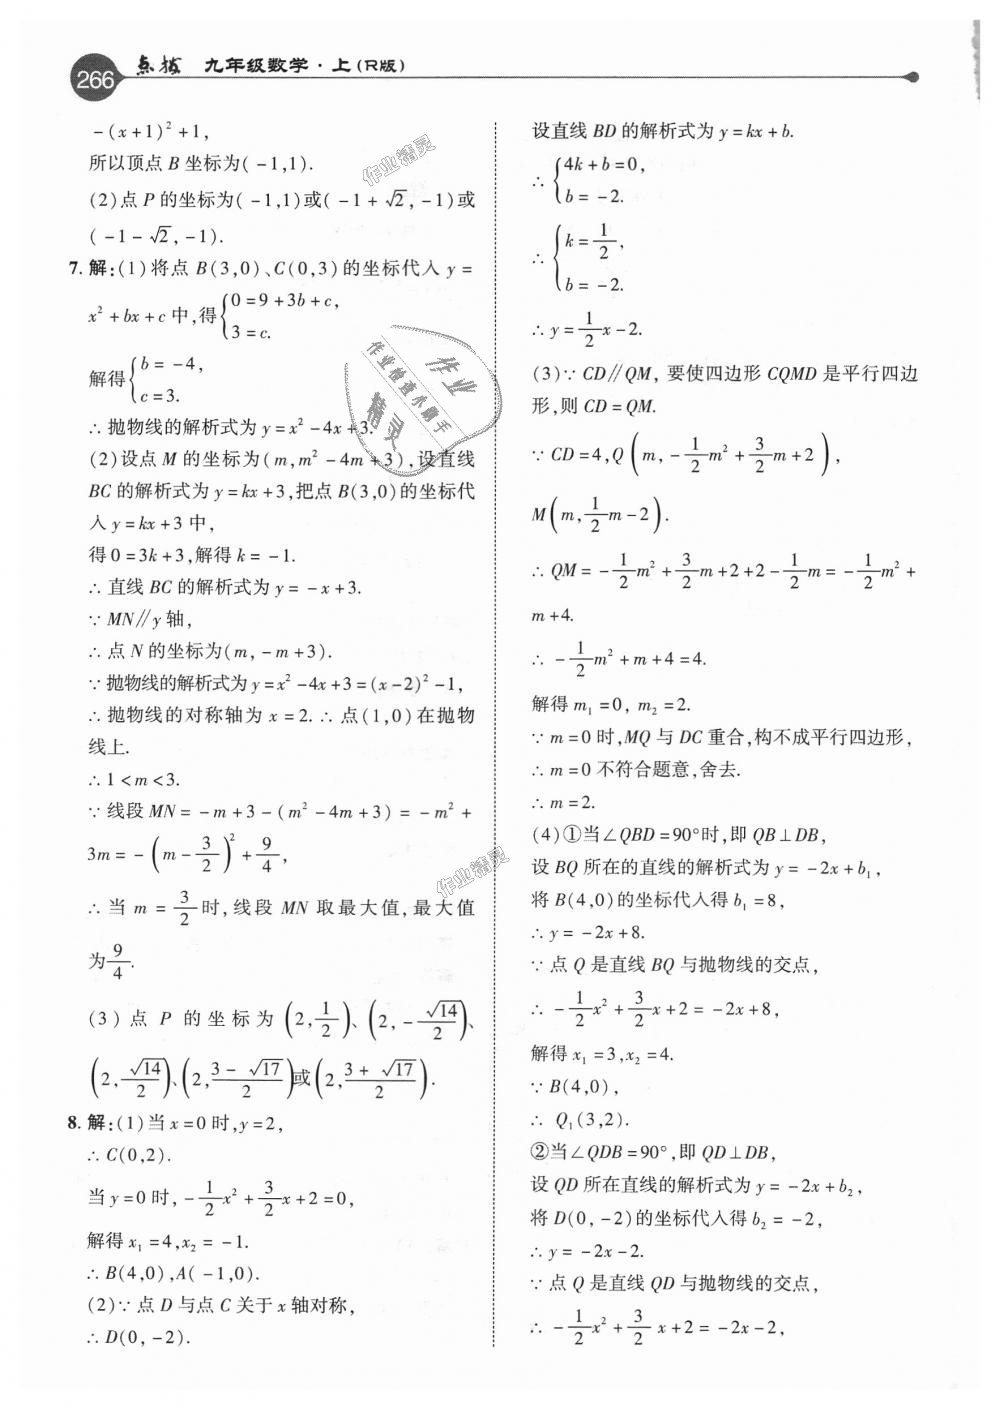 266 点拨 九年级数学·上(R版)
-(x+1)²+1,
所以顶点 B 坐标为(-1,1).
(2)点 P 的坐标为(-1,1)或(-1+√2,-1)或
(-1-√2,-1).
7. 解:(1)将点 B(3,0)、C(0,3)的坐标代入 y=
x²+bx+c 中,得{0=9+3b+c,
3=c.
解得{b=-4,
c=3.
∴抛物线的解析式为 y=x²-4x+3.
(2)设点 M 的坐标为(m,m²-4m+3),设直线
BC 的解析式为 y=kx+3,把点 B(3,0)的坐标代
入 y=kx+3 中,
得 0=3k+3,解得 k=-1.
∴直线 BC 的解析式为 y=-x+3.
∵MN∥y 轴,
∴点 N 的坐标为(m,-m+3).
∵抛物线的解析式为 y=x²-4x+3=(x-2)²-1,
∴抛物线的对称轴为 x=2.∴点(1,0)在抛物
线上.
∴1<m<3.
∵线段 MN=-m+3-(m²-4m+3)=-m²+
3m=-(m-3/2)²+9/4,
∴当 m=3/2时,线段 MN 取最大值,最大值
为9/4.
(3)点 P 的坐标为(2,1/2)、(2,-√14/2)、
(2,√14/2)、(2,3-√17/2)或(2,3+√17/2).
8. 解:(1)当 x=0 时,y=2,
∴C(0,2).
当 y=0 时,-1/2x²+3/2x+2=0,
解得 x₁=4,x₂=-1.
∴B(4,0),A(-1,0).
(2)∵点 D 与点 C 关于 x 轴对称,
∴D(0,-2).
设直线 BD 的解析式为 y=kx+b.
∴{4k+b=0,
b=-2.
∴{k=1/2,
b=-2.
∴y=1/2x-2.
(3)∵CD∥QM,要使四边形 CQMD 是平行四边
形,则 CD=QM.
∵CD=4,Q(m,-1/2m²+3/2m+2),
M(m,1/2m-2).
∴QM=-1/2m²+3/2m+2+2-1/2m=-1/2m²+
m+4.
∴-1/2m²+m+4=4.
解得 m₁=0,m₂=2.
∵m=0 时,MQ 与 DC 重合,构不成平行四边形,
∴m=0 不符合题意,舍去.
∴m=2.
(4)①当∠QBD=90°时,即 QB⊥DB,
设 BQ 所在的直线的解析式为 y=-2x+b₁,
将 B(4,0)的坐标代入得 b₁=8,
∴y=-2x+8.
∵点 Q 是直线 BQ 与抛物线的交点,
∴-1/2x²+3/2x+2=-2x+8,
解得 x₁=3,x₂=4.
∵B(4,0),
∴Q₁(3,2).
②当∠QDB=90°,即 QD⊥DB,
设 QD 所在直线的解析式为 y=-2x+b₂,
将 D(0,-2)的坐标代入得 b₂=-2,
∴y=-2x-2.
∵点 Q 是直线 QD 与抛物线的交点,
∴-1/2x²+3/2x+2=-2x-2,
作业精灵
作业
作业检查小助手
精灵
作业精灵